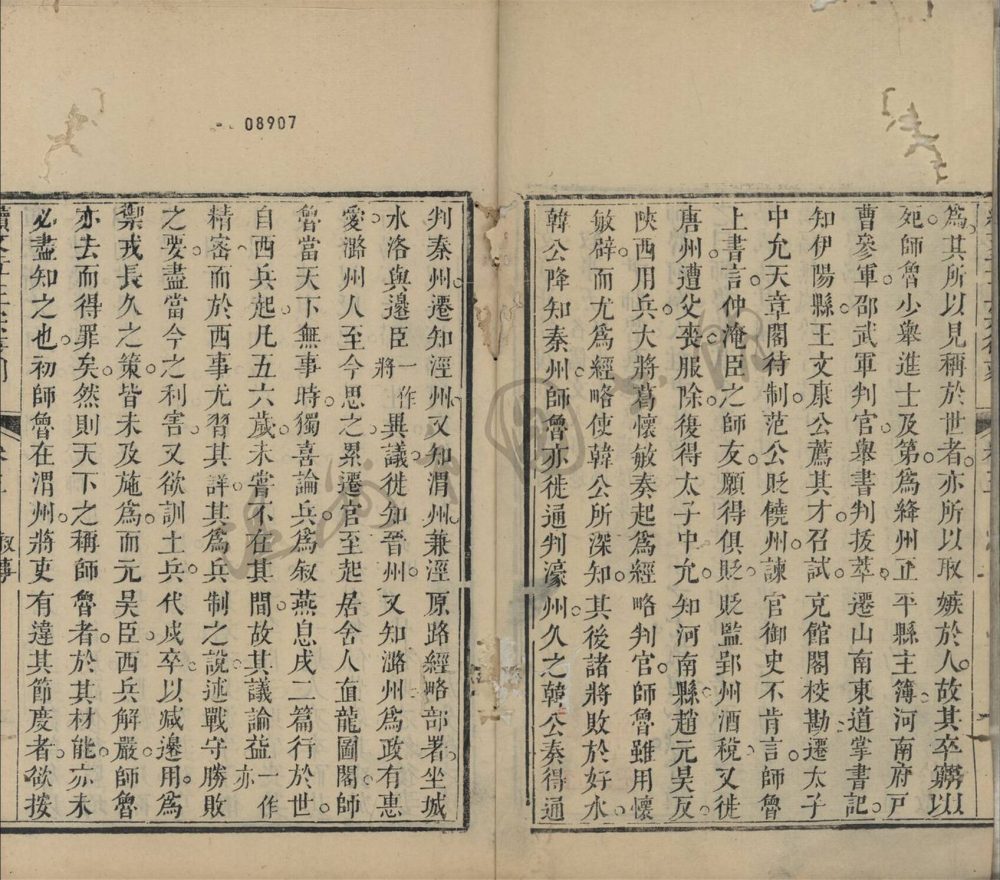 為其所以見稱於世者亦所以取嫉於人故其卒窮以
死師魯少舉進士及第為絳州正平縣主簿河南府戸
曹參軍邵武軍判官舉書判拔萃遷山南東道掌書記
知伊陽縣王文康公薦其才召試充館閣校勘遷太子
中允天章閣待制范公貶饒州諫官御史不肯言師魯
上書言仲淹臣之師友願得俱貶貶監郢州酒稅又徙
唐州遭父喪服除復得太子中允知河南縣趙元昊反
陝西用兵大將葛懷敏奏起為經略判官師魯雖用懷
敏辟而尤為經略使韓公所深知其後諸將敗於好水
韓公降知秦州師魯亦徙通判濠州久之韓公奏得通
08907
判秦州遷知涇州又知渭州兼涇原路經略部署坐城
水洛與邊臣一作將異議徙知晉州又知潞州為政有惠
愛潞州人至今思之累遷官至起居舍人直龍圖閣師
魯當天下無事時獨喜論兵為敘燕息戍二篇行於世
自西兵起凡五六歲未嘗不在其間故其議論益一作亦
精密而於西事尤習其詳其為兵制之說述戰守勝敗
之要盡當今之利害又欲訓土兵代戍卒以減邊用為
禦戎長久之策皆未及施為而元昊臣西兵解嚴師魯
亦去而得罪矣然則天下之稱師魯者於其材能亦未
必盡知之也初師魯在渭州將吏有違其節度者欲按